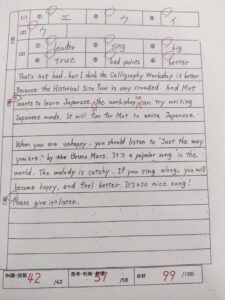 (1) エ ウ イ
ウ
① leader ② sing ③ big
④ true ⑤ bad points ⑥ better
That's not bad, but I think the Calligraphy Workshop is better.
Because the Historical Site Tour is very crowded. And Mat
wants to learn Japanese. the workshop can try writing
Japanese words. It will fun for Mat to write Japanese.
When you are unhappy, you should listen to "Just the way
you are," by Bruno Mars. It's a popular song in the
world. The melody is catchy. If you sing along, you will
become happy, and feel better. It's so nice song!
Please give it a listen.
知識・技能 42 /42 思考・判断・表現 57 /58 合計 99 /100